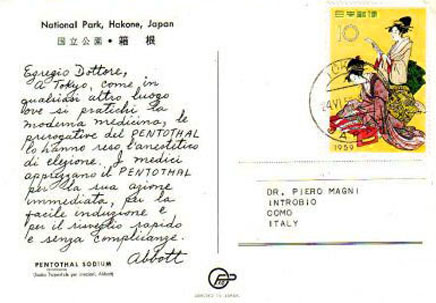 National Park, Hakone, Japan
国立公園・箱根
Egregio Dottore,
a Tokyo, come in
qualsiasi altro luogo
ove si pratichi la
moderna medicina, le
prerogative del PENTOTHAL
lo hanno reso l'anestetico
di elezione. I medici
apprezzano il PENTOTHAL
per la sua azione
immediata, per la
facile induzione e
per il risveglio rapido
e senza complicanze.
Abbott
PENTOTHAL SODIUM
日本郵便
10
24.VI
1959
DR. PIERO MAGNI
INTROBIO
COMO
ITALY
PRINTED IN JAPAN